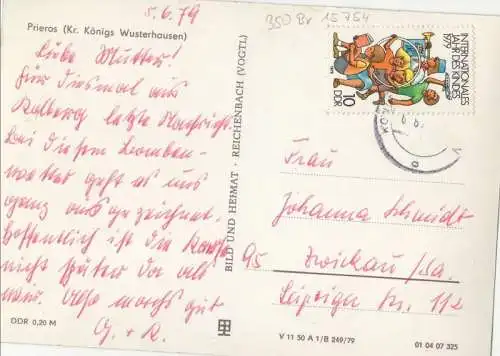 5.6.79
Prieros (Kr. Königs Wusterhausen)
Liebe Mutter!
Für diesmal aus
Kolberg letzte Nachricht.
Bei diesem Bomben-
wetter geht es uns
ganz ausgezeichnet.
Hoffentlich ist die Karte
nicht später da als
wir. Also machs gut
G. + R.
DDR 0,20 M
BILD UND HEIMAT · REICHENBACH (VOGTL)
350 Br 15754
INTERNATIONALES
JAHR DES KINDES
1979
10
DDR
Frau
Johanna Schmidt
95 Zwickau/Sa.
Leipziger Str. 112
V 11 50 A 1/B 249/79
01 04 07 325